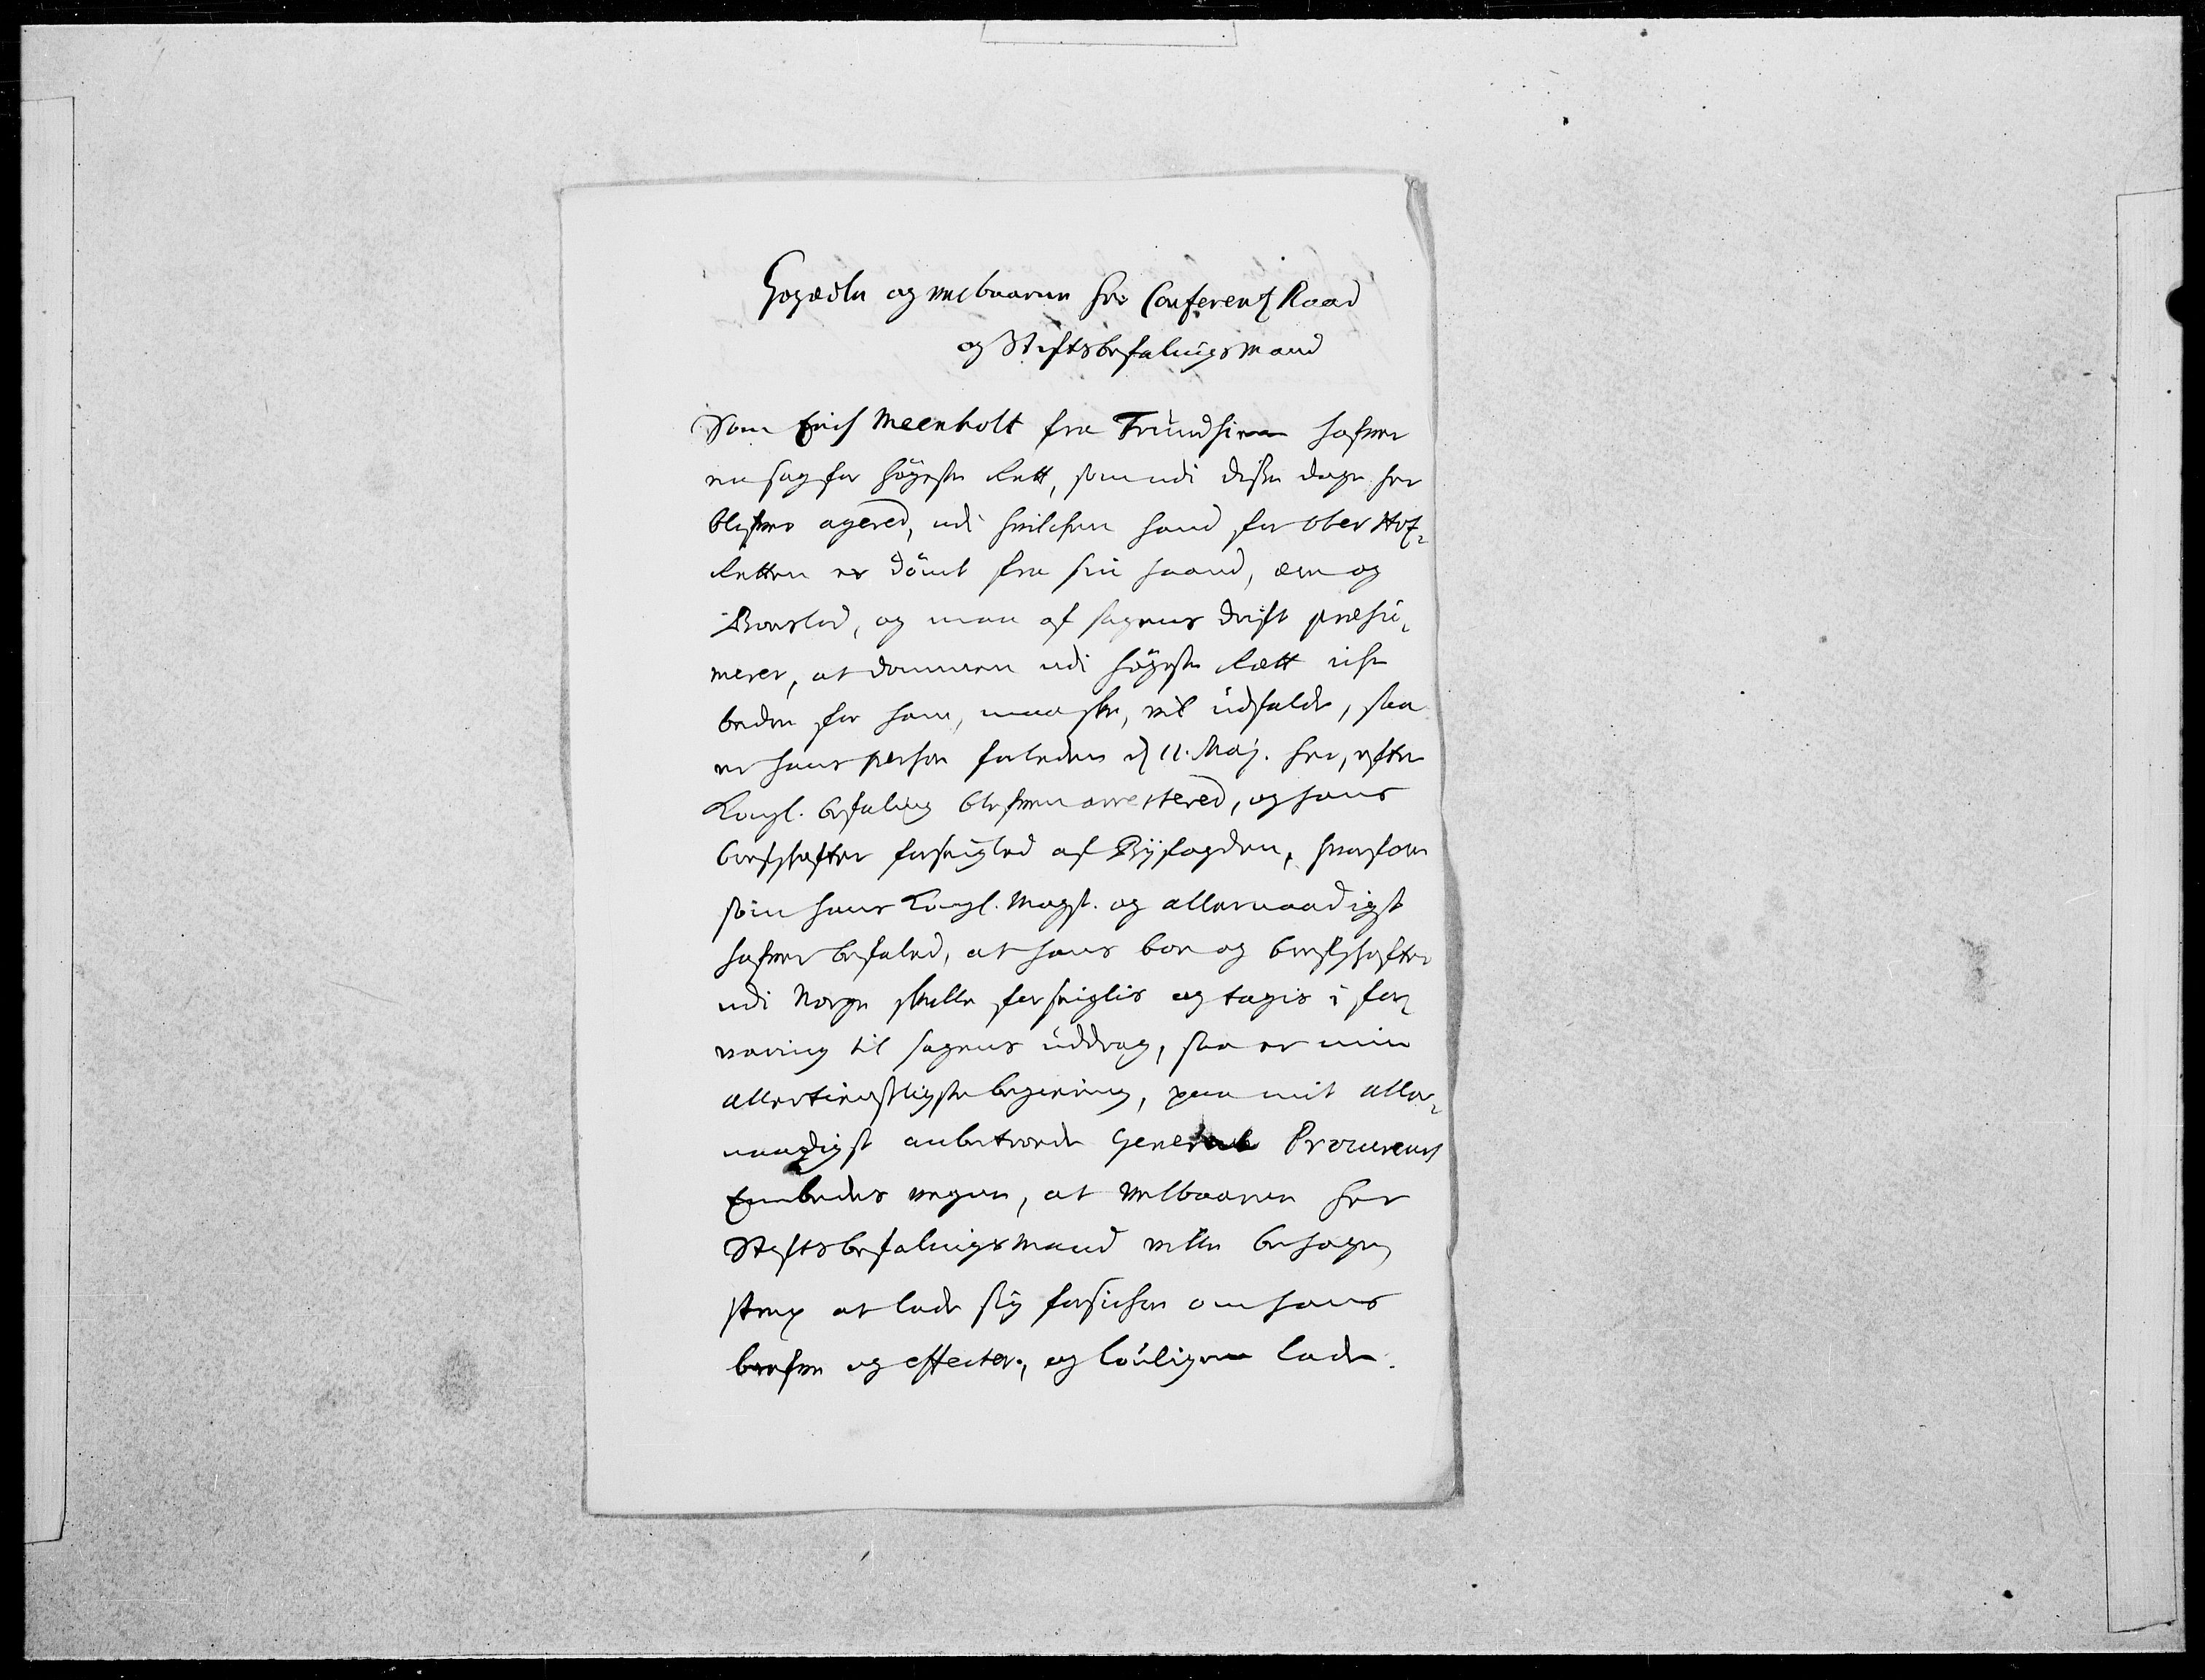 Høgædle og velbaarne her Conferentz Raad
og Stiftsbefalingsmand
Som Erich Meenholt fra Trundhiem hafver
en sag for høyeste Rett, som udi disse dage her
blifver agered, udi hvilchen hand for Ober Hof¬
Retten er dømt fra sin haand, ære og
Boeslod, og man af sagens drift præsu¬
merer, at dommen udi høyeste Rætt iche
bedre for ham, maaske, vil udfalde, saa
er hans person forleden d 11. Maj. her, efter
Kongl. befaling blefven arrestered, og hans
brefschafter forseigled af Byfogden, hvorsom
som hans Kongl. Mayst. og allernaadigst
hafver befaled, at hans boe og brefschafter
udi Norge skulle forseiglis og tagis i for¬
varing til sagens uddrag, saa er min
allertienstligste begiering, paa mit aller¬
naadigst anbetroede General Procureurs
Embedes vegne, at velbaarne her
Stiftsbefalingsmand ville behage,
strax at lade sig forsichre om hans
brefve og effecter, og louligen lade